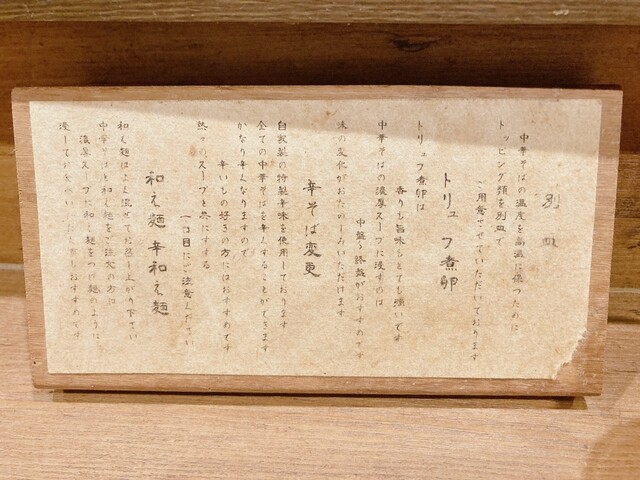 別皿
中華そばの温度を高温に保つために
トッピング類を別皿で
ご用意させていただいております
トリュフ煮卵
トリュフ煮卵は
香りも旨味もとても強いです
中華そばの濃厚スープに浸すのは
中盤〜終盤がおすすめです
味の変化がおたのしみいただけます
辛そば変更
自家製の特製辛味を使用しております
全ての中華そばを辛くすることができます
かなり辛くなりますので
辛いもの好きの方にはおすすめです
熱々のスープと共にすする
一口目にご注意ください
和え麺 辛和え麺
和え麺はよく混ぜてお召し上がり下さい
中華そばと和え麺をご注文の方は
濃厚スープに和え麺をつけ麺のように
浸してお食べいただくのもおすすめです